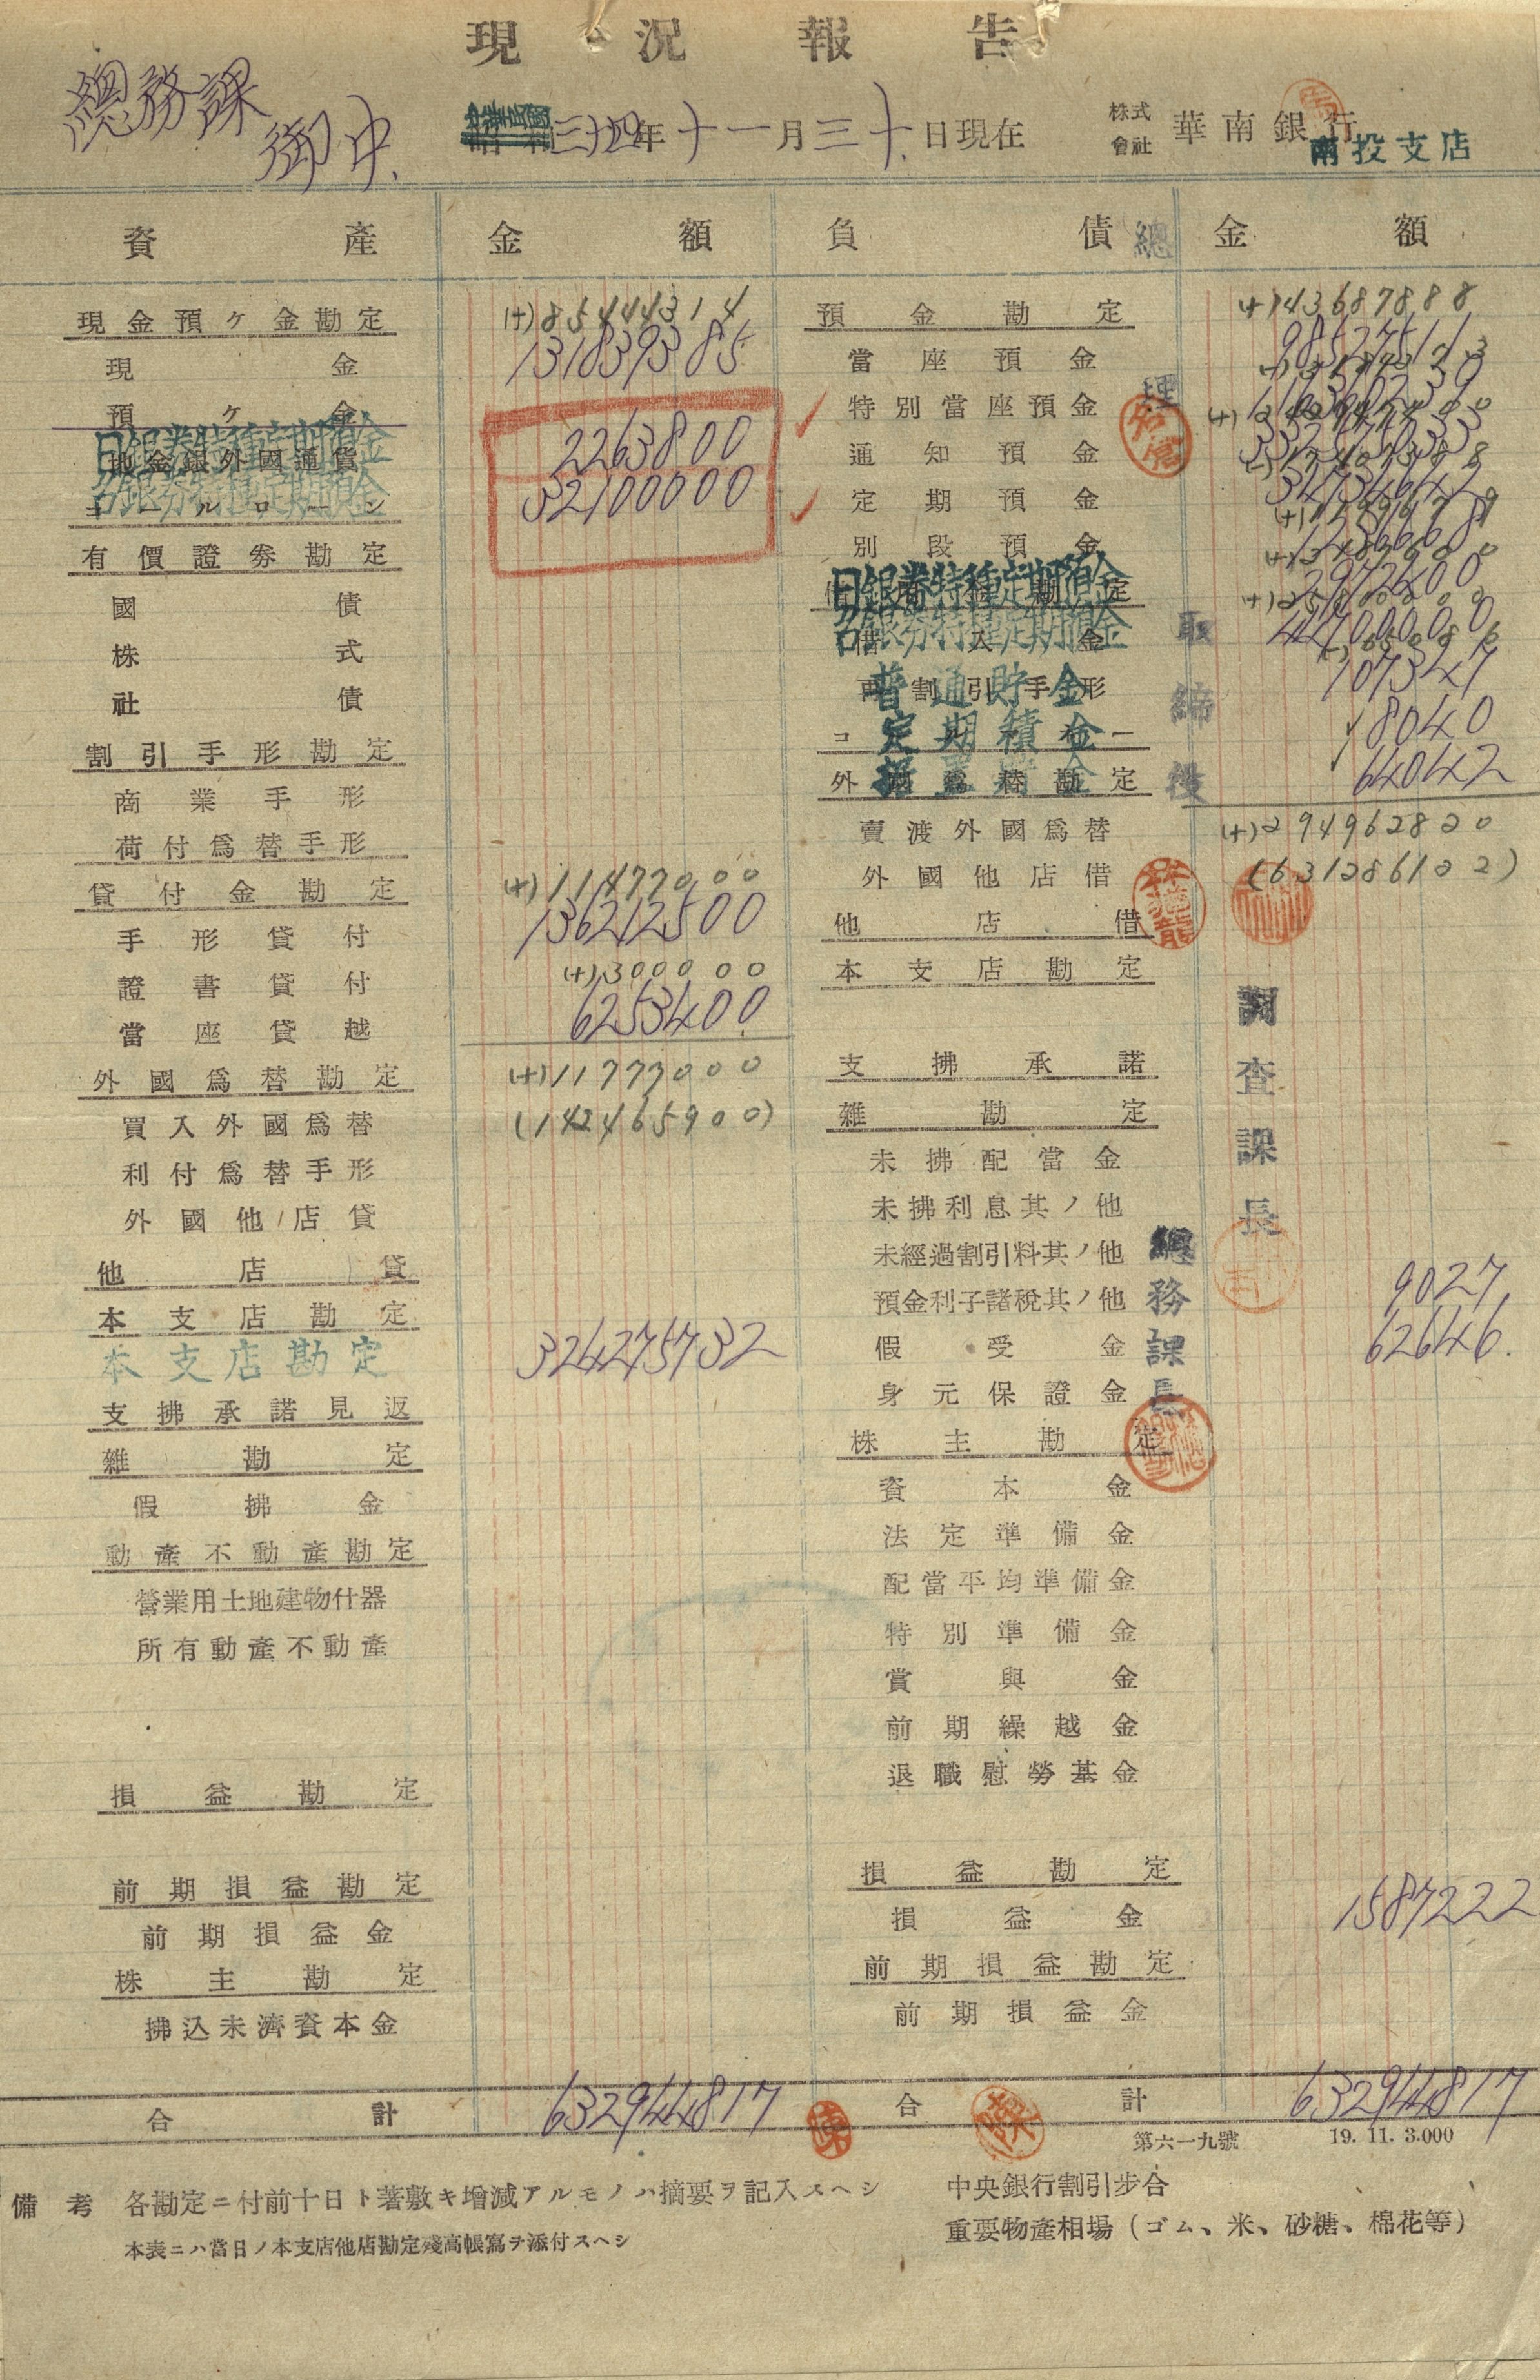 現況報告
總務課
御中
中華民國三十四年十一月三十日現在
株式會社 華南銀行
南投支店
資產 金額 負債 金額
現金預ケ金勘定 (+)85444314
現金 131839385
預ケ金
日銀券特種定期預金 2263800
地金銀外國通貨
台銀券特種定期預金 32100000
コールローン
有價證券勘定
國債
株式
社債
割引手形勘定
商業手形
荷付爲替手形
貸付金勘定 (+)11477000
手形貸付 136212500
證書貸付 (+)300000
當座貸越 6253400
外國爲替勘定 (+)11777000
買入外國爲替 (142465900)
利付爲替手形
外國他店貸
他店貸
本支店勘定
本支店勘定 324275732
支拂承諾見返
雜勘定
假拂金
動產不動產勘定
營業用土地建物什器
所有動產不動產
損益勘定
前期損益勘定
前期損益金
株主勘定
拂込未濟資本金
合計 632944817
預金勘定 (+)43687888
當座預金
特別當座預金
通知預金
定期預金
別段預金
日銀券特種定期預金
台銀券特種定期預金
借入金
再割引手形
普通貯金 107347
定期積金 8040
外國爲替勘定 64042
賣渡外國爲替 (+)294962820
外國他店借 (631286102)
他店借
本支店勘定
支拂承諾
雜勘定
未拂配當金
未拂利息其ノ他
未經過割引料其ノ他
預金利子諸稅其ノ他 9027
假受金 62646
身元保證金
株主勘定
資本金
法定準備金
配當平均準備金
特別準備金
賞與金
前期繰越金
退職慰勞基金
損益勘定
損益金 1587222
前期損益勘定
前期損益金
合計 632944817
總
理
取
締
役
調查課長
總務課長
陳
第六一九號 19. 11. 3.000
備考 各勘定ニ付前十日ト著敷キ增減アルモノハ摘要ヲ記入スヘシ
本表ニハ當日ノ本支店他店勘定殘高帳寫ヲ添付スヘシ
中央銀行割引步合
重要物產相場（ゴム、米、砂糖、棉花等）